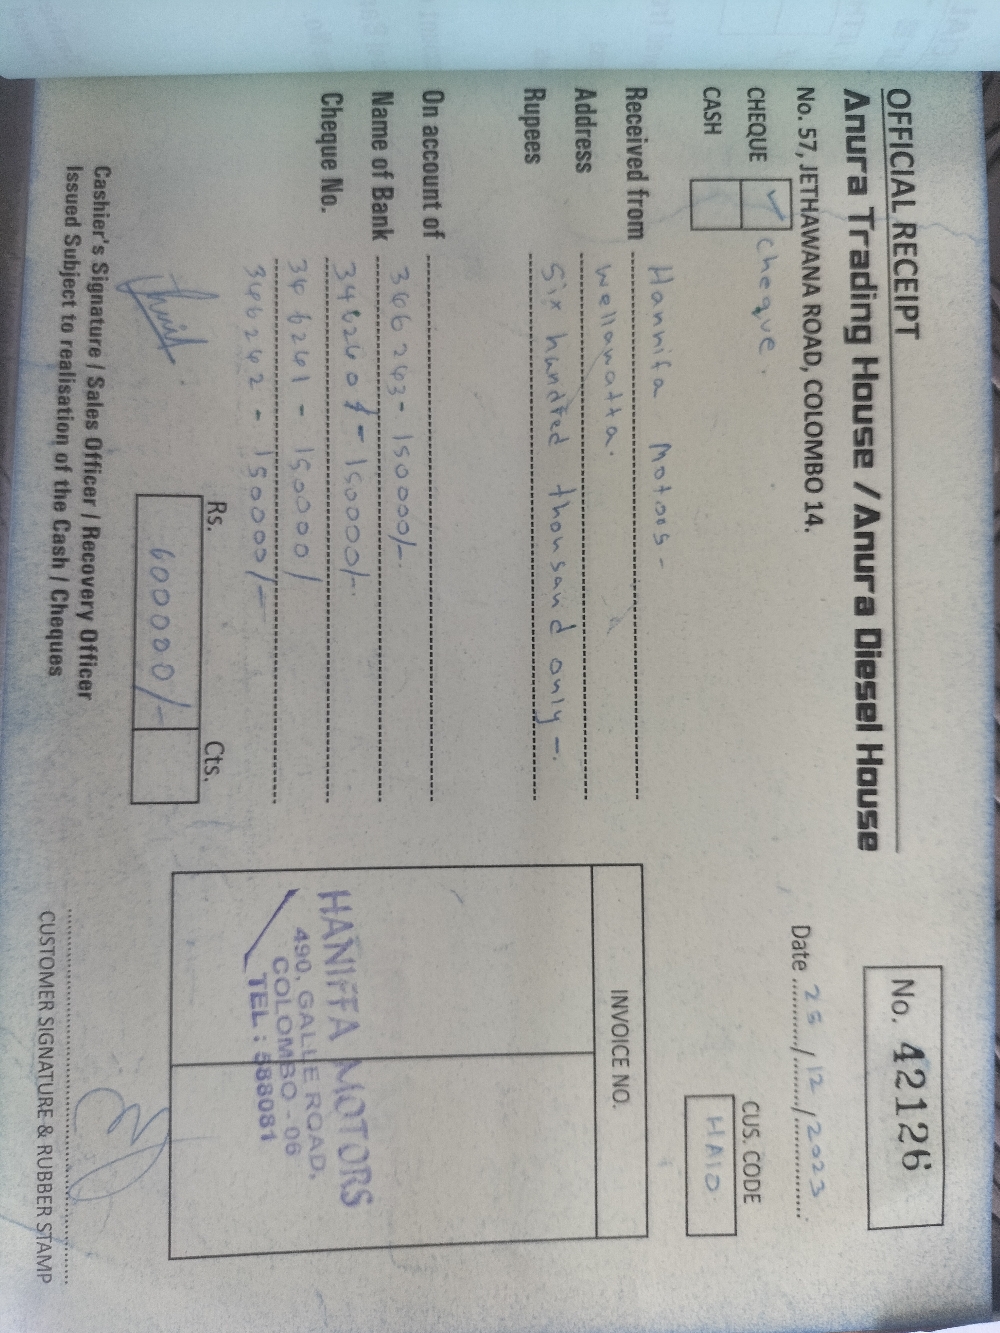 OFFICIAL RECEIPT
Anura Trading House / Anura Diesel House
No. 57, JETHAWANA ROAD, COLOMBO 14.
No. 42126
Date 25 / 12 / 2023
CHEQUE ✓ cheque.
CASH
CUS. CODE
HA10
Received from Hannifa Motors -
Address Wellawatta.
Rupees Six hundred thousand only -.
On account of
Name of Bank 346243 - 150000/-.
Cheque No. 346240 - 150000/-.
346241 - 150000/
346242 - 150000/-
INVOICE NO.
HANIFFA MOTORS
490, GALLE ROAD,
COLOMBO - 06
TEL : 588081
Rs. Cts.
600000/-
Cashier's Signature / Sales Officer / Recovery Officer
Issued Subject to realisation of the Cash / Cheques
CUSTOMER SIGNATURE & RUBBER STAMP